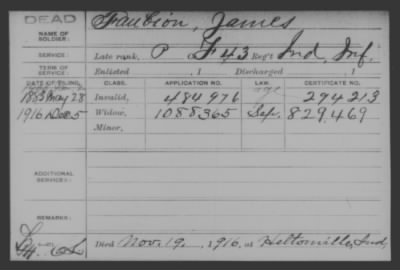 DEAD
NAME OF SOLDIER:
Faubion, James
SERVICE:
Late rank, P F 43 Reg't Ind. Inf.
TERM OF SERVICE:
Enlisted , 1 Discharged , 1
DATE OF FILING. CLASS. APPLICATION NO. LAW. CERTIFICATE NO.
1883 May 28 Invalid, 484976 294213
1916 Dec 5 Widow, 1088365 Sep. 829.469
Minor,
ADDITIONAL SERVICES:
REMARKS:
Died Nov. 19, 1916, at Heltonville, Ind,